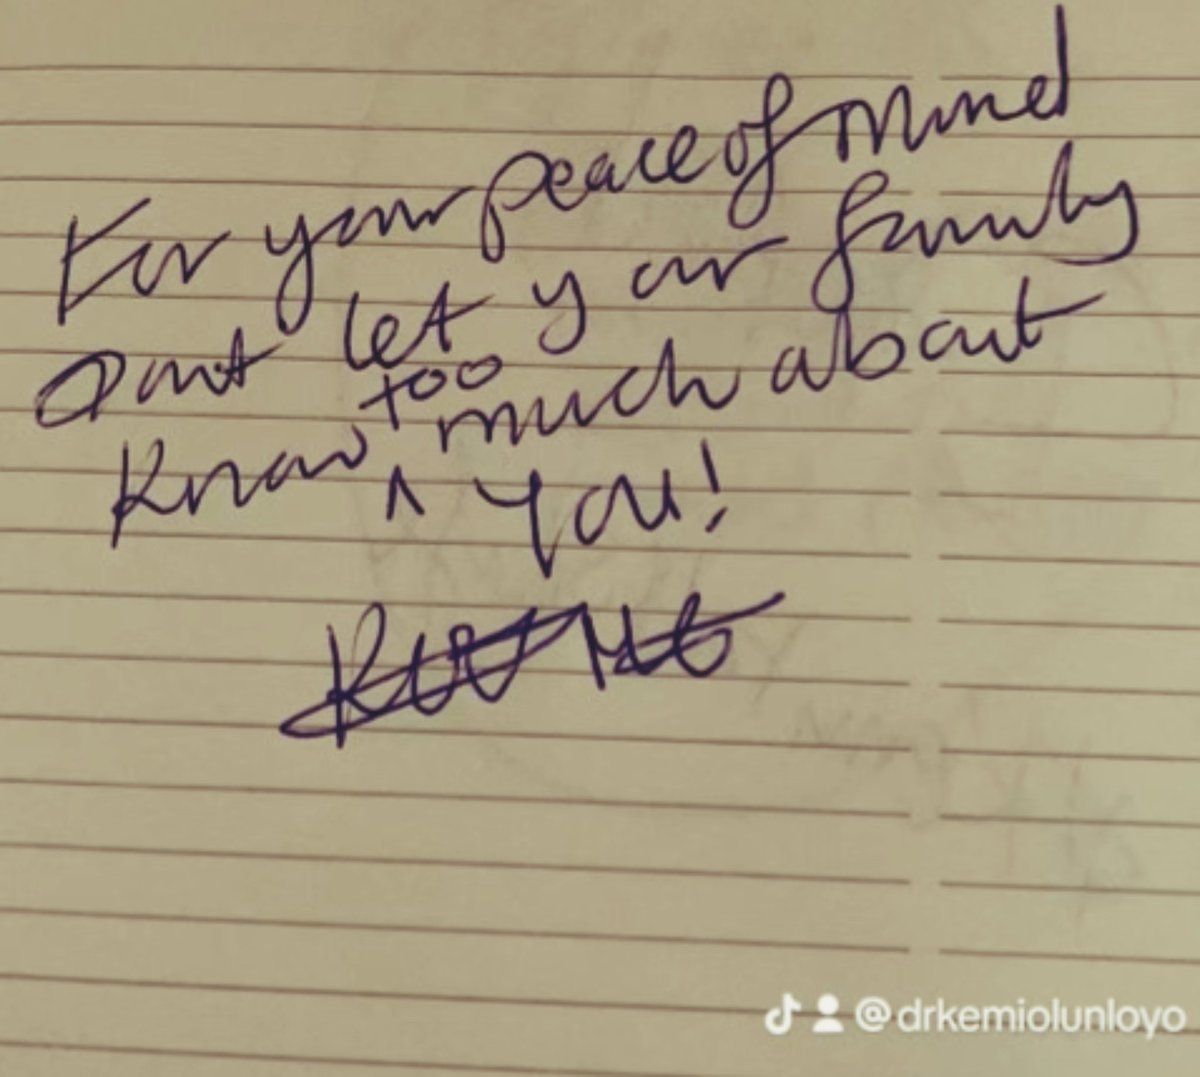 For your peace of mind
Dont let your family
know too much about
^ you!
@drkemiolunloyo